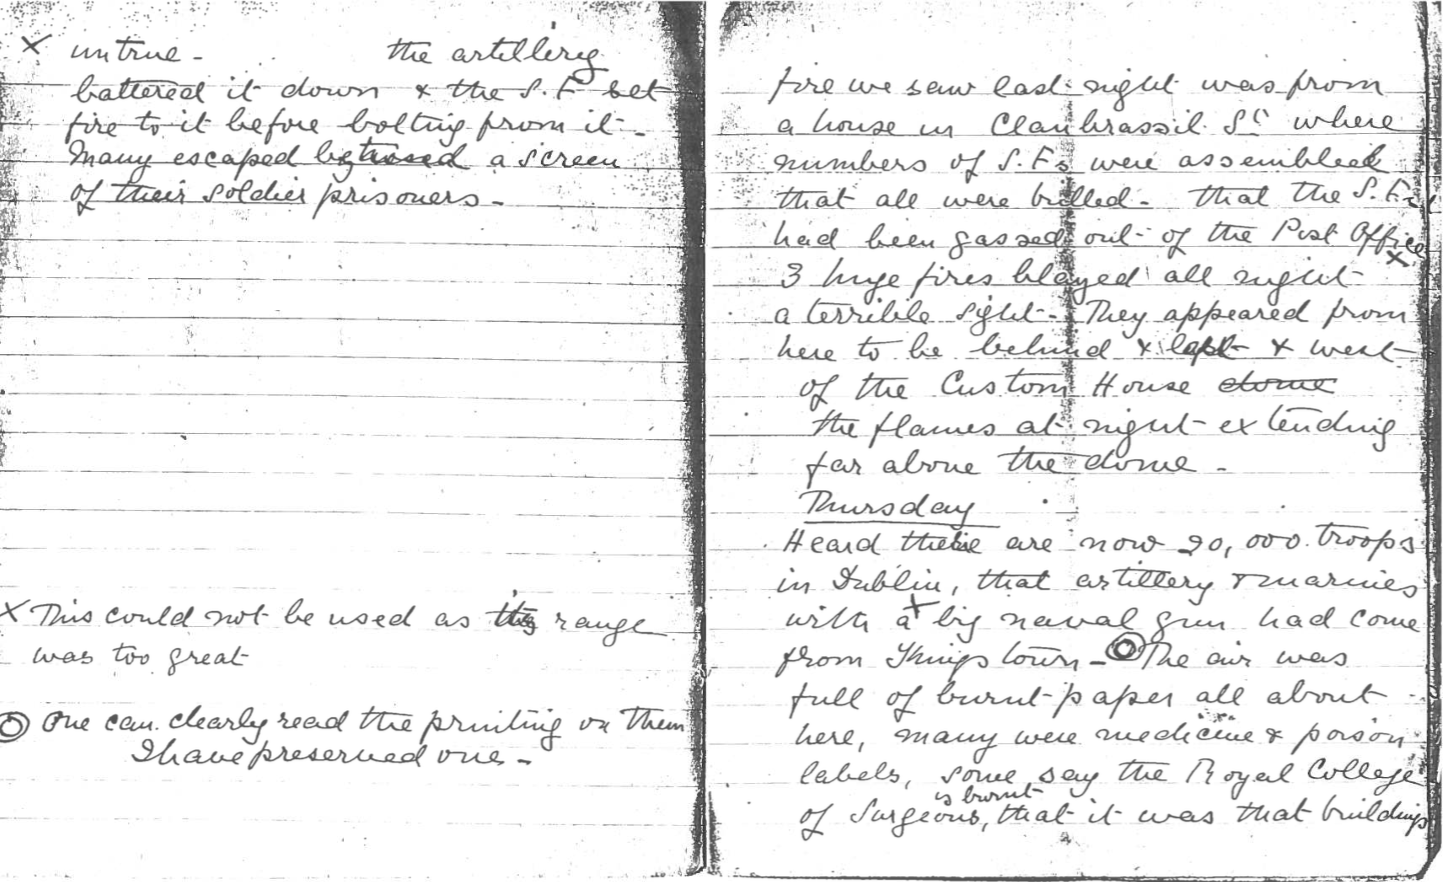 X untrue - the artillery
battered it down & the S.F set
fire to it before bolting from it -
Many escaped by a screen
of their soldier prisoners -
X This could not be used as its range
was too great
◎ One can clearly read the printing on them
I have preserved one -
fire we saw last night was from
a house in Clanbrassil St where
numbers of S.Fs were assembled
that all were killed - that the S.Fs
had been gassed out of the Post Office
X
3 huge fires blazed all night
a terrible sight - They appeared from
here to be behind & left & west
of the Custom House dome
the flames at night extending
far above the dome -
Thursday
Heard there are now 20,000 troops
in Dublin, that artillery & marines
with a X big naval gun had come
from Kingstown - ◎ The air was
full of burnt paper all about
here, many were medicine & poison
labels, some say the Royal College
is burnt
of Surgeons, that it was that buildings